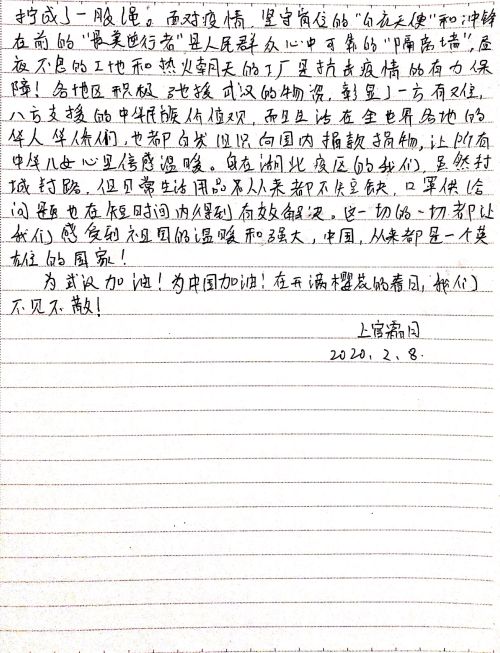 拧成了一股绳。面对疫情，坚守岗位的“白衣天使”和冲锋
在前的“最美逆行者”是人民群众心中可靠的“隔离墙”，昼
夜不息的工地和热火朝天的工厂是抗击疫情的有力保
障！各地区积极驰援武汉的物资，彰显了一方有难，
八方支援的中华民族价值观，而且生活在全世界各地的
华人华侨们，也都自发组织向国内捐款捐物，让所有
中华儿女心里倍感温暖。身在湖北疫区的我们，虽然封
城封路，但日常生活用品却从来都不失短缺，口罩供给
问题也在短时间内得到有效解决。这一切的一切都让
我们感受到祖国的温暖和强大，中国，从来都是一个英
雄的国家！
为武汉加油！为中国加油！在开满樱花的春日，我们
不见不散！
上官霜月
2020.2.8.